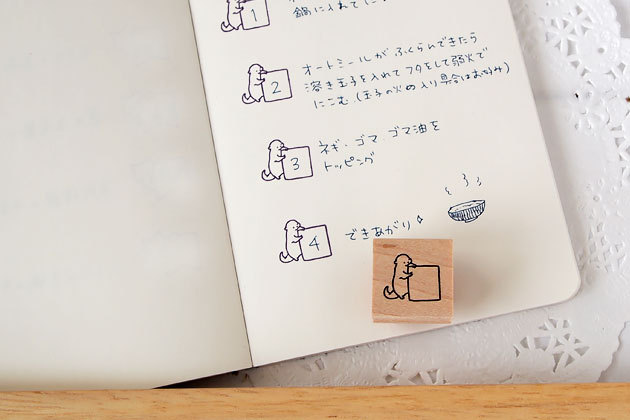 1
鍋に入れて
2
オートミールがふくらんできたら
溶き玉子を入れてフタをして弱火で
にこむ（玉子の火の入り具合はお好み）
3
ネギ・ゴマ・ゴマ油を
トッピング
4
できあがり